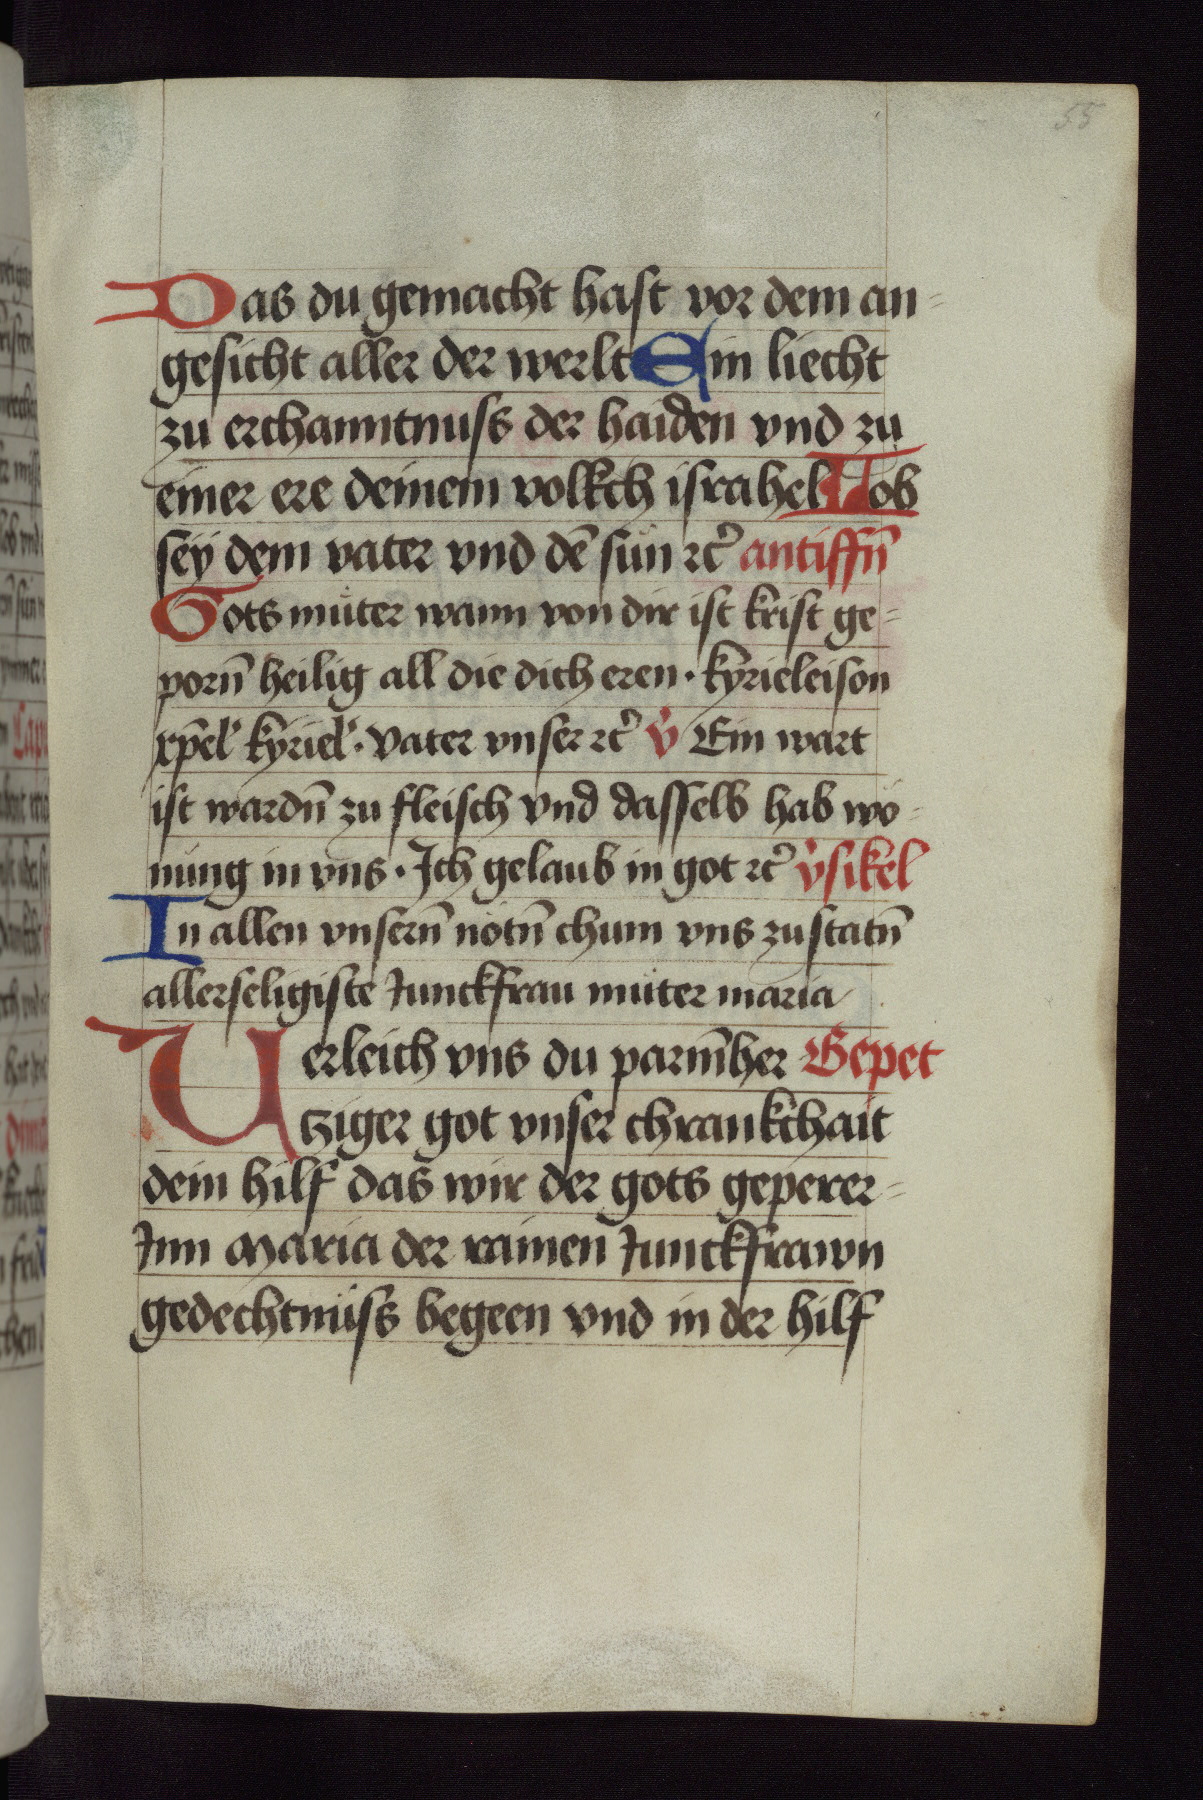 55
Das du gemacht hast vor dem an=
gesicht aller der werlt Ein liecht
zu erchanntnuss der haiden vnd zu
einer ere deinem volkch israhel Lob
sey dem vater vnd dē sun ꝛc̄ antiffn̄
Gots muter wann von dir ist krist ge=
porn̄ heilig all die dich eren · kyrieleison
xp̄el' kyriel' · Vater vnser ꝛc̄ v̄ Ein wart
ist wardn̄ zu fleisch vnd dasselb hab wo=
nung in vns · Ich gelaub in got ꝛc̄ v̄sikel
In allen vnsern̄ nötn̄ chum vns zu statn̄
allerseligiste Junckfrau muter maria
Verleich vns du parm̄her Gepet
tziger got vnser chrankchait
dein hilf das wir der gots geperer=
Inn Maria der rainen Junckfrawn
gedechtnüss begeen vnd in der hilf